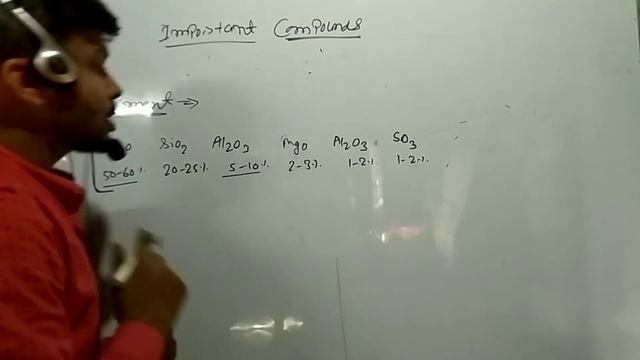 Important Compounds
ment →
O SiO2 Al2O3 MgO Al2O3 SO3
50-60%. 20-25%. 5-10%. 2-3%. 1-2%. 1-2%.